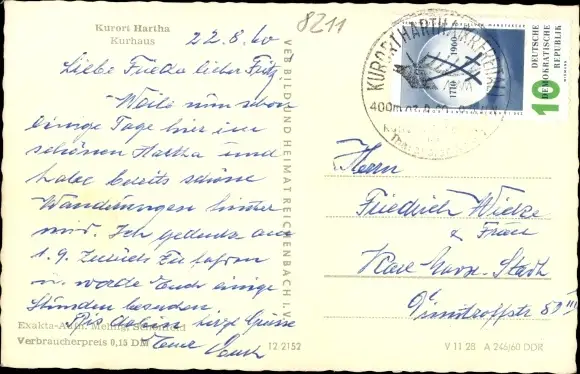 Kurort Hartha
Kurhaus
8211
22.8.60
Liebe Frieda lieber Fritz
Weile nun schon
einige Tage hier im
schönen Hartha und
habe bereits schöne
Wanderungen hinter
mir. Ich gedenke am
1.9. zurück zu fahren
u. werde Euch einige
Stunden besuchen
Bis dahin herzl Grüsse
Eure
Exakta-Aufn. Schönfeld
Verbraucherpreis 0,15 DM
12 2152
VEB BILD UND HEIMAT REICHENBACH I. V.
KURORT HARTHA
400m
DEUTSCHE
DEMOKRATISCHE
REPUBLIK
10
1710 1960
Herrn
Friedrich Wietze
& Frau
Karl Marx-Stadt
Dimitroffstr 89 III
V 11 28 A 246/60 DDR